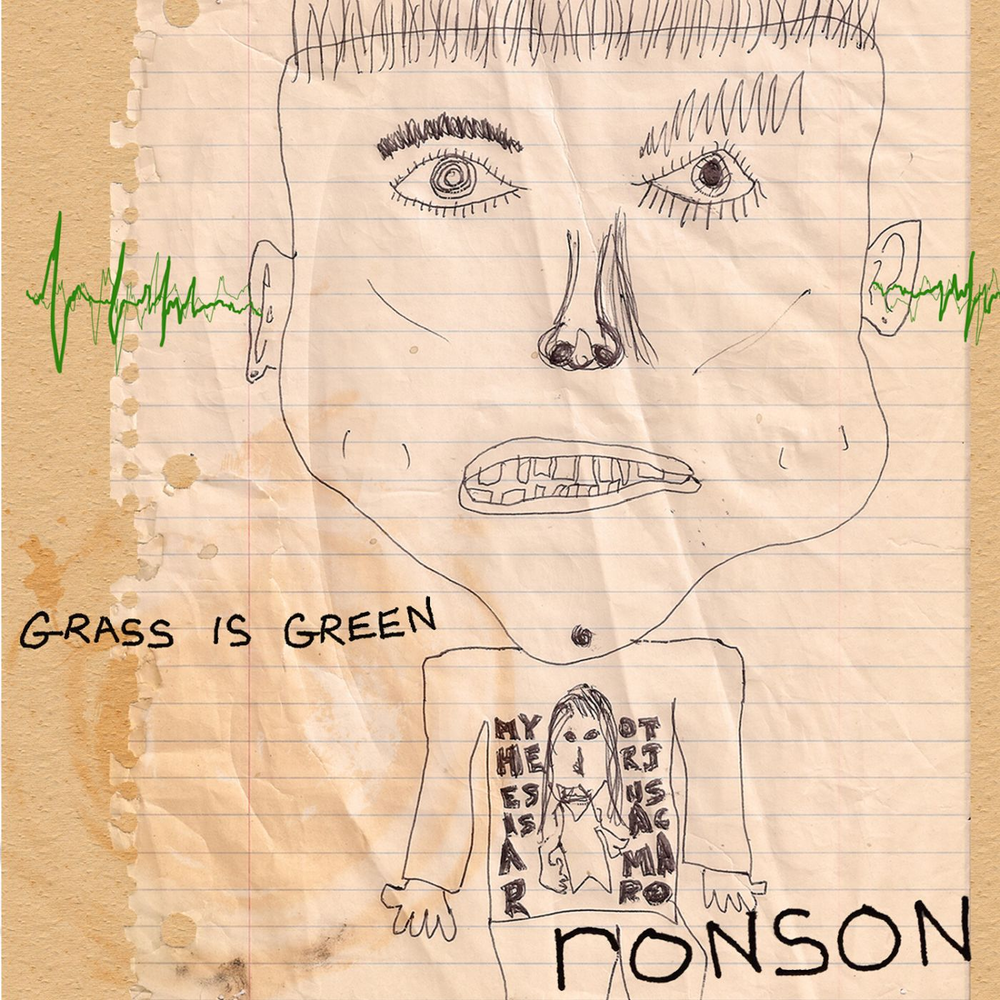 GRASS IS GREEN
MY OT
HE RJ
ES US
IS AC
A MA
R RO
rONSON